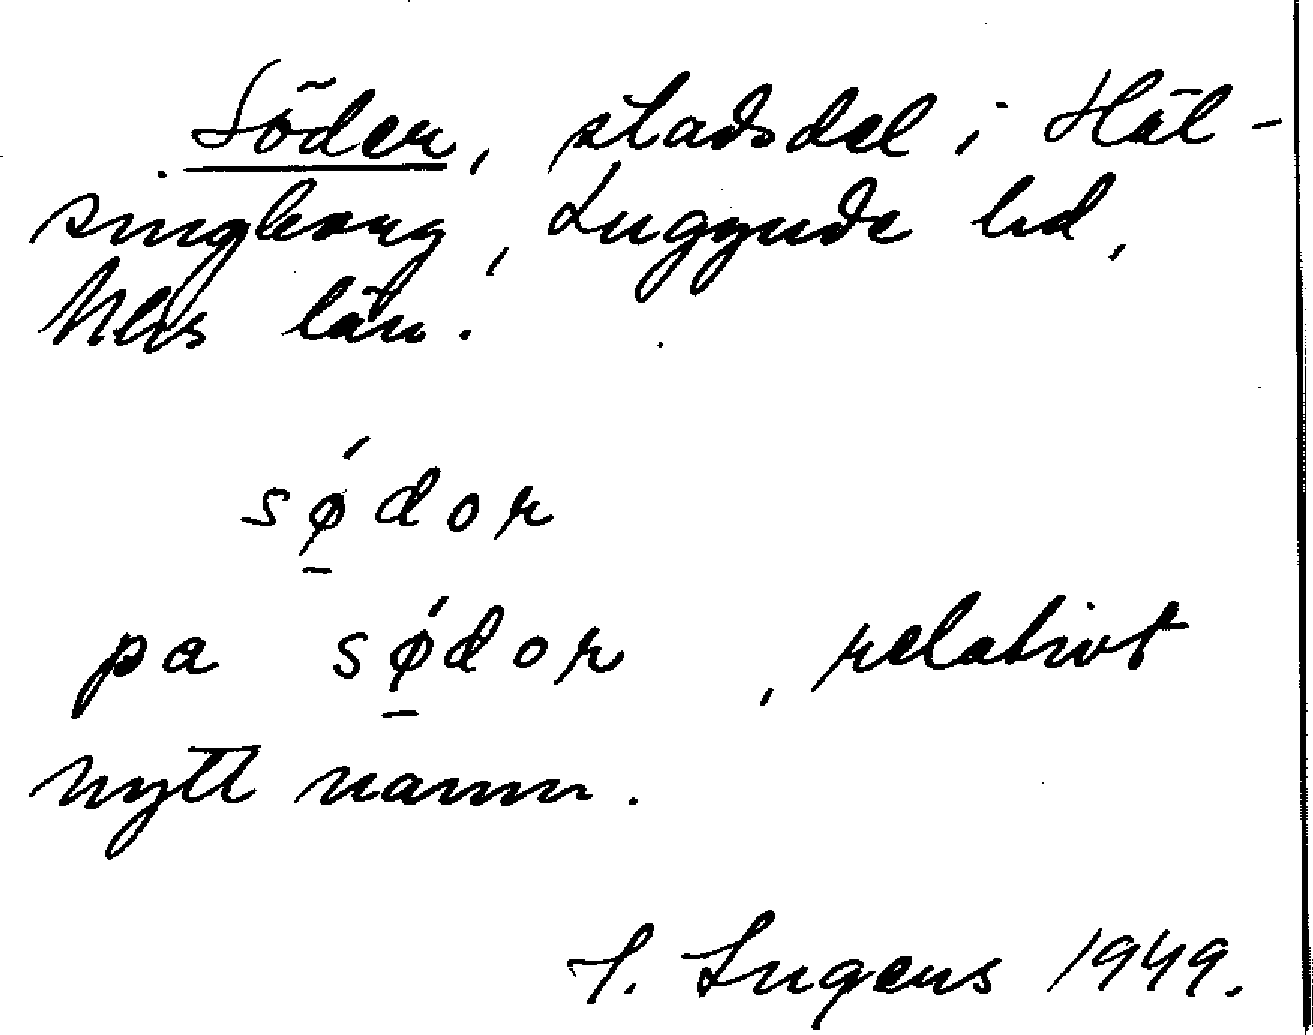 Söder, stadsdel i Häl-
singborg, Luggude hd,
Mlhs län.
sǿ̱dor
pa sǿ̱dor, relativt
nytt namn.
I. Ingers 1949.